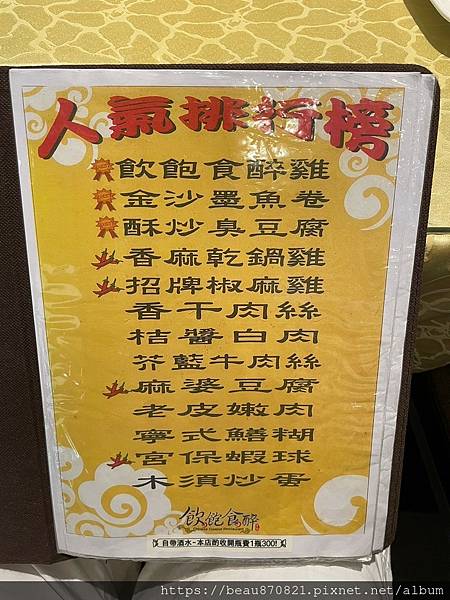 人氣排行榜
飲飽食醉雞
金沙墨魚卷
酥炒臭豆腐
香麻乾鍋雞
招牌椒麻雞
香干肉絲
桔醬白肉
芥藍牛肉絲
麻婆豆腐
老皮嫩肉
寧式鱔糊
宮保蝦球
木須炒蛋
飲飽食醉
自帶酒水-本店酌收開瓶費1瓶300!
https://beau870821.pixnet.net/album